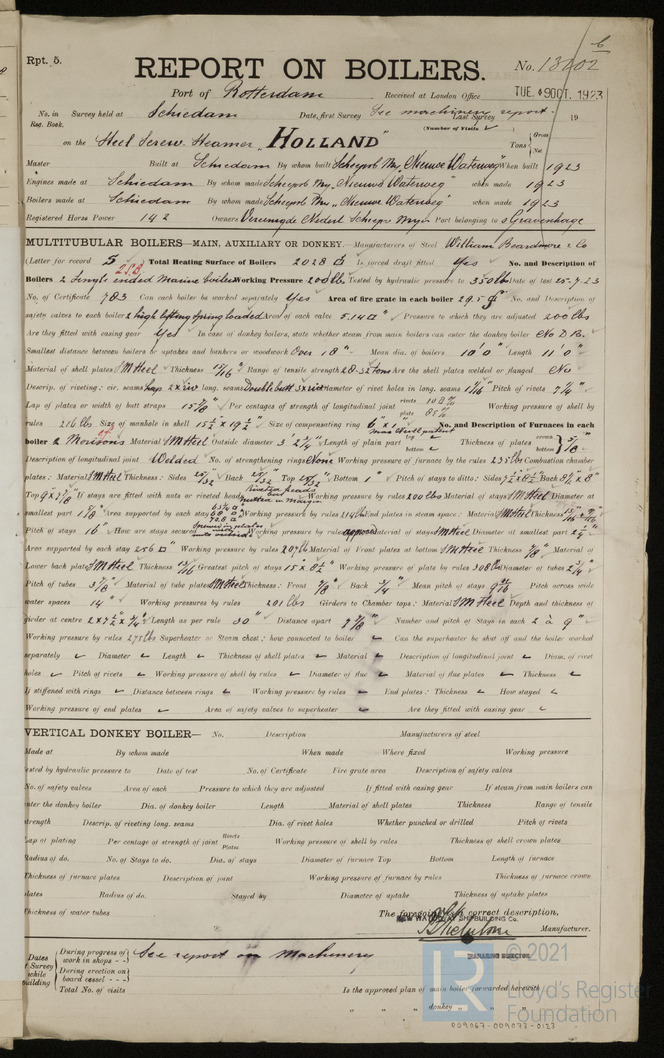 6
Rpt. 5.
REPORT ON BOILERS.
No. 13202
Port of Rotterdam Received at London Office TUE. 9 OCT. 1923
No. in Survey held at Schiedam Date, first Survey See machinery report. Last Survey 19
Reg. Book. (Number of Visits
on the Steel Screw Steamer "HOLLAND" Tons Gross Net
Master Built at Schiedam By whom built Scheepsb My "Nieuwe Waterweg" When built 1923
Engines made at Schiedam By whom made Scheepsb My "Nieuwe Waterweg" when made 1923
Boilers made at Schiedam By whom made Scheepsb My "Nieuwe Waterweg" when made 1923
Registered Horse Power 142 Owners Port belonging to s Gravenhage
MULTITUBULAR BOILERS—MAIN, AUXILIARY OR DONKEY.—Manufacturers of Steel William Beardmore & Co
(Letter for record S Total Heating Surface of Boilers 2028 Is forced draft fitted Yes No. and Description of
Boilers 2 Single ended Marine boilers Working Pressure 200 lbs Tested by hydraulic pressure to 350 lbs Date of test 25-7-23
No. of Certificate 783 Can each boiler be worked separately Yes Area of fire grate in each boiler 29.5 No. and Description of
safety valves to each boiler 2 high lifting spring loaded Area of each valve 5.14 Pressure to which they are adjusted 200 lbs
Are they fitted with easing gear Yes In case of donkey boilers, state whether steam from main boilers can enter the donkey boiler No D.B.
Smallest distance between boilers or uptakes and bunkers or woodwork Over 18" Mean dia. of boilers 10'0" Length 11'0"
Material of shell plates SM Steel Thickness 15/16" Range of tensile strength 28-32 tons Are the shell plates welded or flanged No
Descrip. of riveting: cir. seams lap 2 x riv long. seams Double butt 3 x riv Diameter of rivet holes in long. seams 1 1/16" Pitch of rivets 7 1/4"
Lap of plates or width of butt straps 15 7/8" Per centages of strength of longitudinal joint rivets plate Working pressure of shell by
rules 216 lbs Size of manhole in shell 15 1/2 x 19 1/2" Size of compensating ring No. and Description of Furnaces in each
boiler 2 Morisons Material SM Steel Outside diameter 3' 2 3/4" Length of plain part top bottom Thickness of plates crown bottom 5/8"
Description of longitudinal joint Welded No. of strengthening rings None Working pressure of furnace by the rules 235 lbs Combustion chamber
plates: Material SM Steel Thickness: Sides 25/32 Back 25/32 Top 25/32" Bottom 1" Pitch of stays to ditto: Sides Back
Top If stays are fitted with nuts or riveted heads Working pressure by rules 200 lbs Material of stays SM Steel Diameter at
smallest part Area supported by each stay Working pressure by rules End plates in steam space: Material SM Steel Thickness
Pitch of stays 16" How are stays secured Working pressure by rules approved Material of stays SM Steel Diameter at smallest part
Area supported by each stay 256 Working pressure by rules 207 lbs Material of Front plates at bottom SM Steel Thickness 7/8" Material of
Lower back plate SM Steel Thickness 13/16 Greatest pitch of stays 15 x 8 1/2" Working pressure of plate by rules 308 lbs Diameter of tubes 2 3/4"
Pitch of tubes 3 7/8" Material of tube plates SM Steel Thickness: Front 7/8" Back 3/4" Mean pitch of stays Pitch across wide
water spaces 14" Working pressures by rules 201 lbs Girders to Chamber tops: Material SM Steel Depth and thickness of
girder at centre 2 x 7 1/2 x 3/4" Length as per rule 30" Distance apart 7 7/8" Number and pitch of Stays in each 2 à 9"
Working pressure by rules 275 lbs Superheater or Steam chest; how connected to boiler Can the superheater be shut off and the boiler worked
separately Diameter Length Thickness of shell plates Material Description of longitudinal joint Diam. of rivet
holes Pitch of rivets Working pressure of shell by rules Diameter of flue Material of flue plates Thickness
If stiffened with rings Distance between rings Working pressure by rules End plates: Thickness How stayed
Working pressure of end plates Area of safety valves to superheater Are they fitted with easing gear
VERTICAL DONKEY BOILER— No. Description Manufacturers of steel
Made at By whom made When made Where fixed Working pressure
tested by hydraulic pressure to Date of test No. of Certificate Fire grate area Description of safety valves
No. of safety valves Area of each Pressure to which they are adjusted If fitted with easing gear If steam from main boilers can
enter the donkey boiler Dia. of donkey boiler Length Material of shell plates Thickness Range of tensile
strength Descrip. of riveting long. seams Dia. of rivet holes Whether punched or drilled Pitch of rivets
Lap of plating Per centage of strength of joint Rivets Plates Working pressure of shell by rules Thickness of shell crown plates
Radius of do. No. of Stays to do. Dia. of stays Diameter of furnace Top Bottom Length of furnace
Thickness of furnace plates Description of joint Working pressure of furnace by rules Thickness of furnace crown
plates Radius of do. Stayed by Diameter of uptake Thickness of uptake plates
Thickness of water tubes The foregoing is a correct description,
NEW WATERWAY SHIPBUILDING Co. Manufacturer.
MANAGING DIRECTOR
Dates of Survey while building During progress of work in shops - - During erection on board vessel - - - Total No. of visits
See report on Machinery
Is the approved plan of main boiler forwarded herewith
" " " donkey " " "
© 2021
LR
Lloyd's Register
Foundation
009067-009073-0123